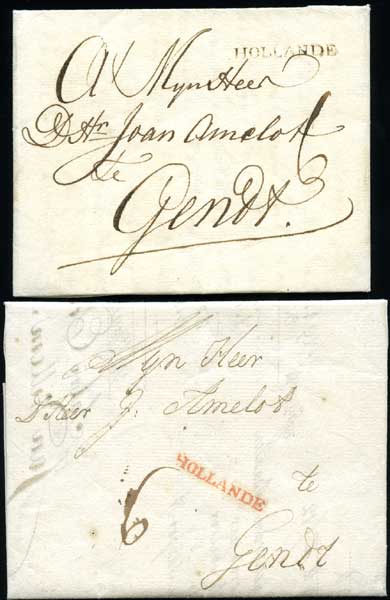 HOLLANDE
A Myn Heer
D Hr Joan Amelot
te
Gendt.
6
Myn Heer
D Heer J. Amelot
HOLLANDE
te
6
Gendt